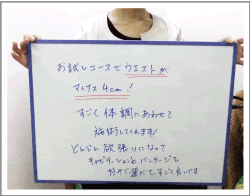 お試しコースでウエストが
マイナス4cm!
すごく体調にあわせて
施術してくれます!
どんどん欲張りになって
キャビテーションとバンテージを
今は選べてすごく良いです